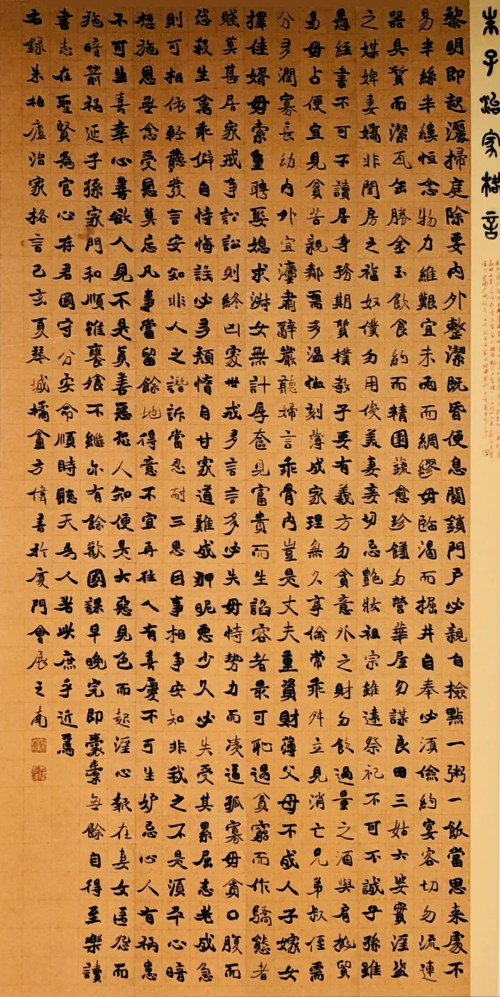 朱子治家格言
黎明即起灑掃庭除要內外整潔既昏便息關鎖門戶必親自檢點一粥一飯當思來處不
易半絲半縷恒念物力維艱宜未雨而綢繆毋臨渴而掘井自奉必須儉約宴客切勿流連
器具質而潔瓦缶勝金玉飲食約而精園蔬愈珍饈勿營華屋勿謀良田三姑六婆實淫盜
之媒婢妻嬌非閨房之福奴僕勿用俊美妻妾切忌艷妝祖宗雖遠祭祀不可不誠子孫雖
愚經書不可不讀居身務期質樸教子要有義方勿貪意外之財勿飲過量之酒與肩挑貿
易毋占便宜見貧苦親鄰需多溫恤刻薄成家理無久享倫常乖舛立見消亡兄弟叔侄需
分多潤寡長幼內外宜灋肅辭嚴聽婦言乖骨肉豈是丈夫重資財薄父母不成人子嫁女
擇佳婿毋索重聘娶媳求淑女無計厚奩見富貴而生諂容者最可恥遇貧窮而作驕態者
賤莫甚居家戒爭訟訟則終凶處世戒多言言多必失毋恃勢力而淩逼孤寡毋貪口腹而
恣殺生禽乖僻自恃悔誤必多頹惰自甘家道難成狎昵惡少久必失受其累屈志老成急
則可相依輕聽發言安知非人之譖訴當忍耐三思因事相爭安知非我之不是須平心暗
想施恩毋念受恩莫忘凡事當留餘地得意不宜再往人有喜慶不可生妒忌心人有禍患
不可生喜幸心善欲人見不是真善惡恐人知便是大惡見色而起淫心報在妻女匿怨而
施暗箭禍延子孫家門和順雖饔飧不繼亦有餘歡國課早晚完即囊橐無餘自得至樂讀
書志在聖賢為官心存君國守分安命順時聽天為人若此庶乎近焉
右錄朱柏廬治家格言己亥夏琴城橘盦方偉書於廈門會展之南